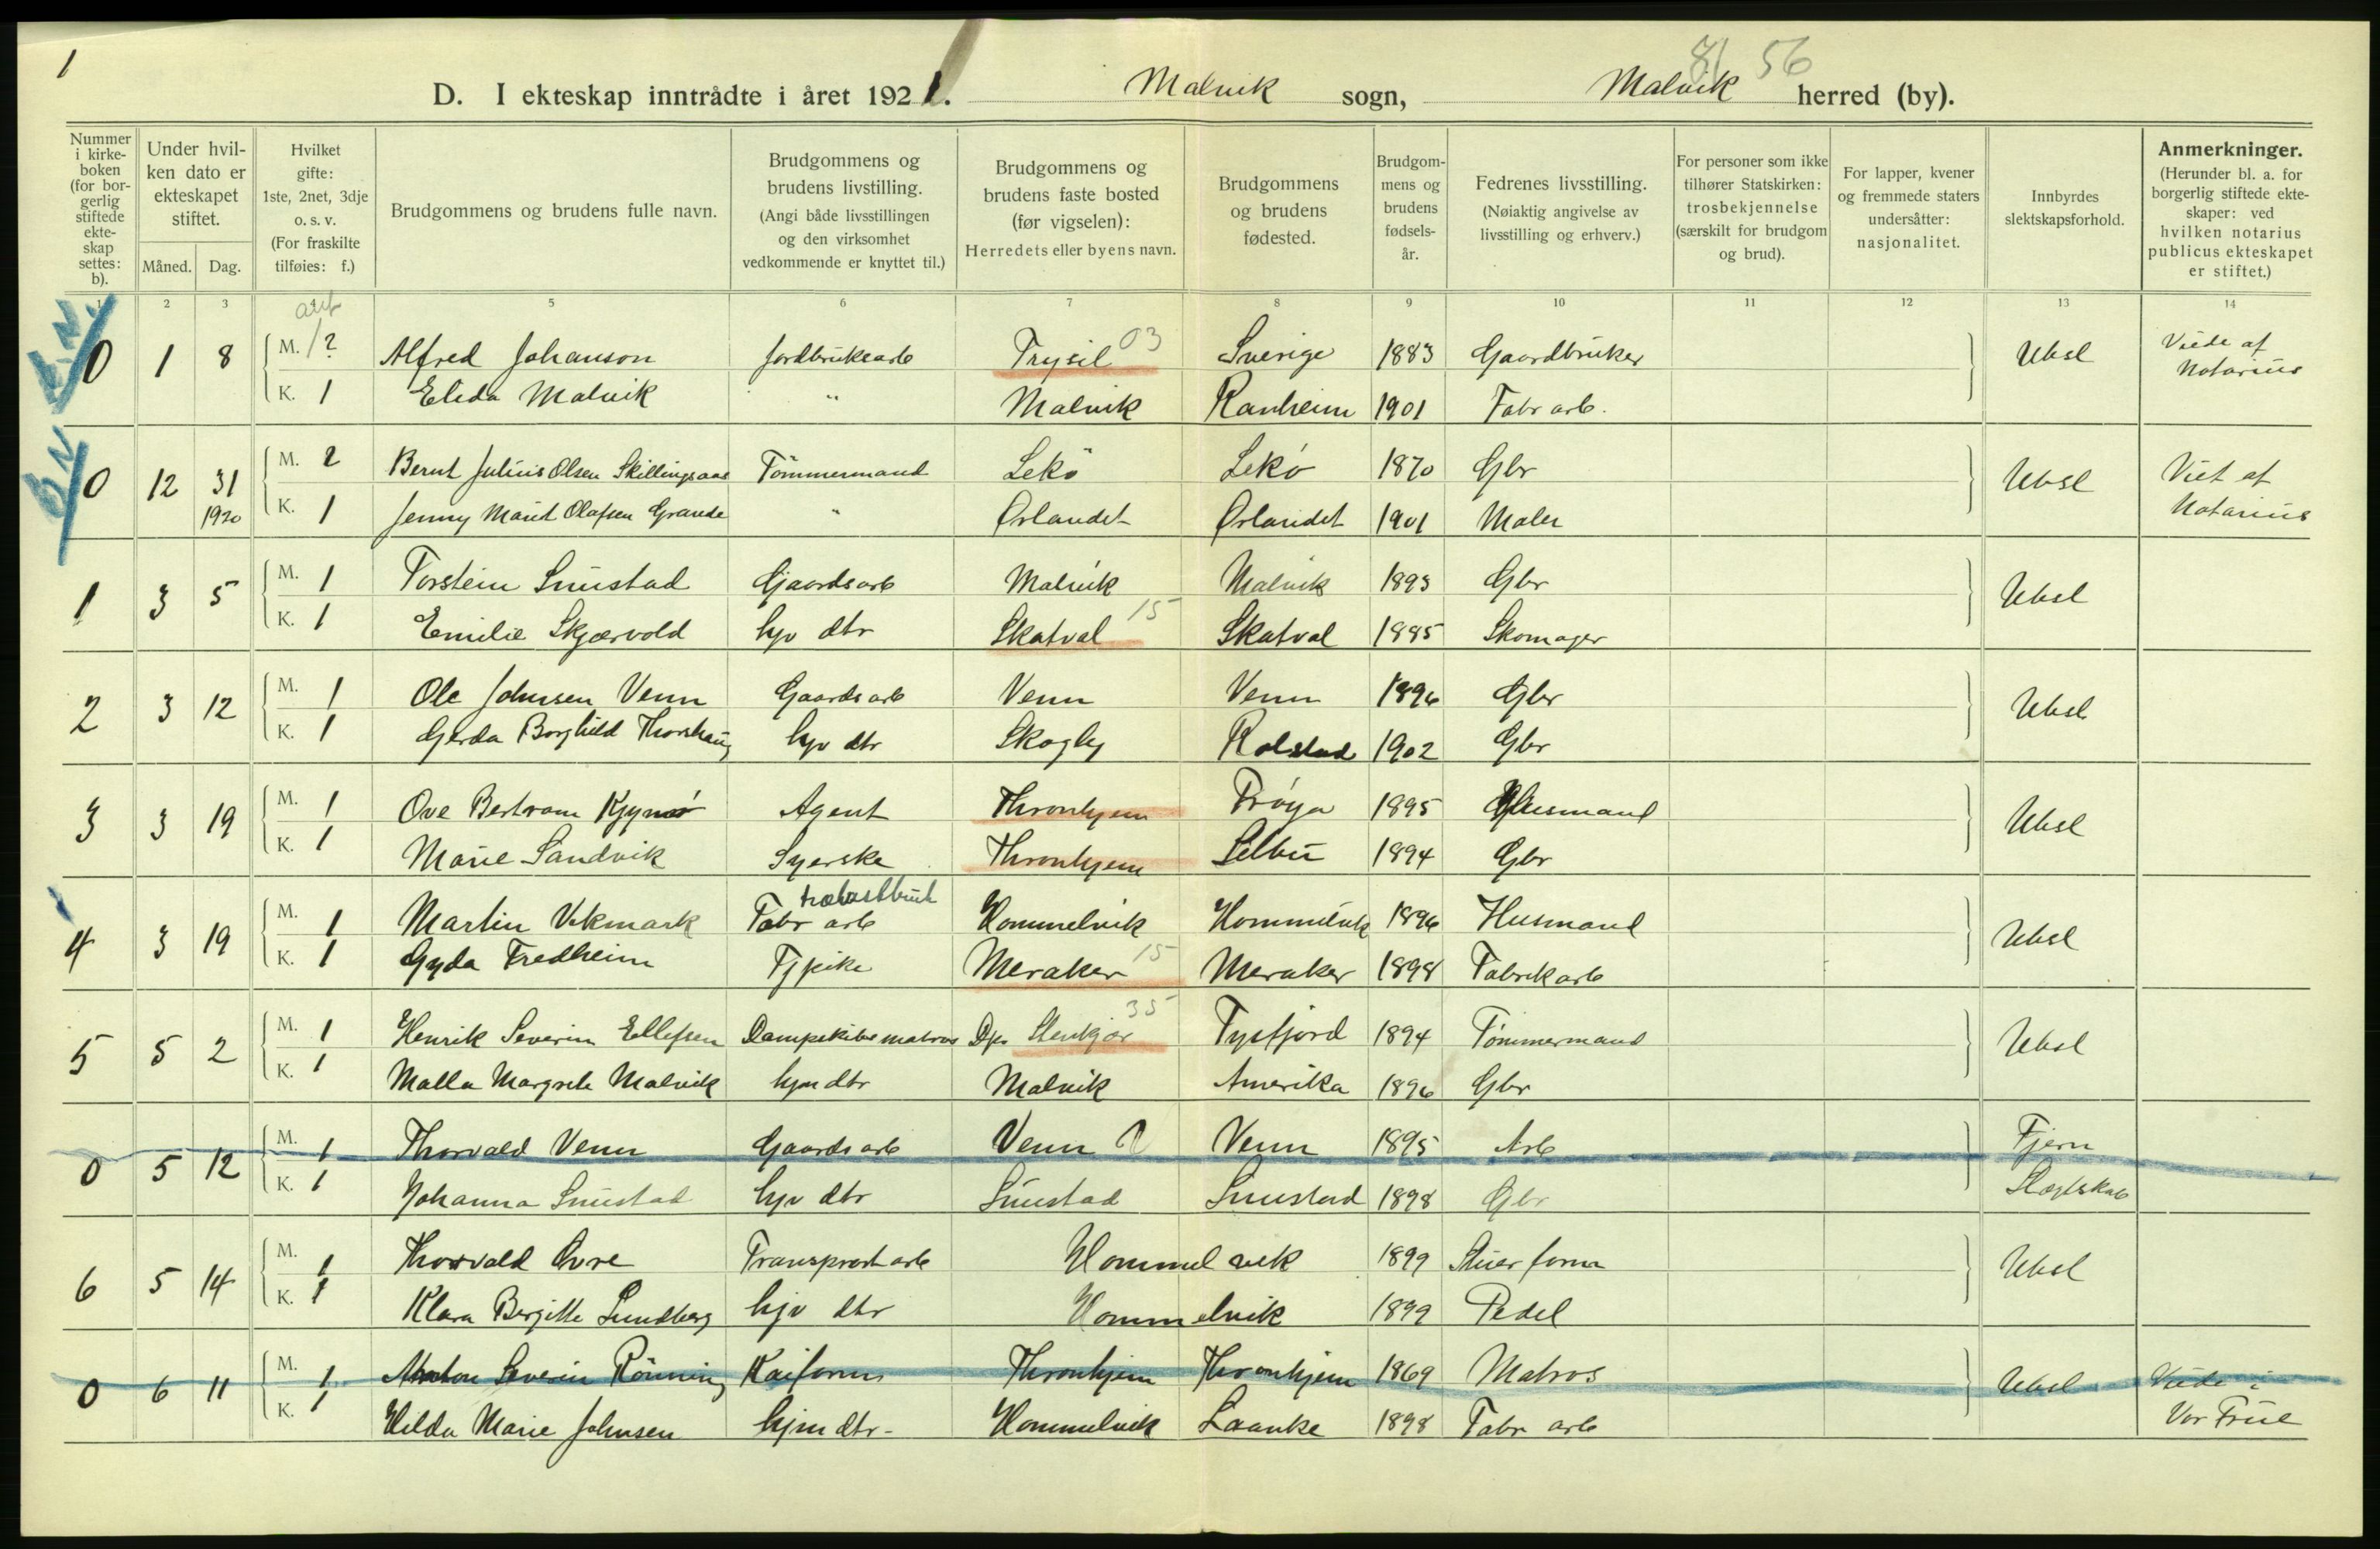 1
81 56
D. I ekteskap inntrådte i året 1921. Malvik sogn, Malvik herred (by).
Nummer i kirkeboken (for borgerlig stiftede ekteskap settes: b).
Under hvilken dato er ekteskapet stiftet.
Måned. Dag.
Hvilket gifte: 1ste, 2net, 3dje o. s. v. (For fraskilte tilføies: f.)
Brudgommens og brudens fulle navn.
Brudgommens og brudens livstilling. (Angi både livsstillingen og den virksomhet vedkommende er knyttet til.)
Brudgommens og brudens faste bosted (før vigselen): Herredets eller byens navn.
Brudgommens og brudens fødested.
Brudgommens og brudens fødsels-år.
Fedrenes livsstilling. (Nøiaktig angivelse av livsstilling og erhverv.)
For personer som ikke tilhører Statskirken: trosbekjennelse (særskilt for brudgom og brud).
For lapper, kvener og fremmede staters undersåtter: nasjonalitet.
Innbyrdes slektskapsforhold.
Anmerkninger. (Herunder bl. a. for borgerlig stiftede ekteskaper: ved hvilken notarius publicus ekteskapet er stiftet.)
1 2 3 5 6 7 8 9 10 11 12 13 14
0 1 8 M. 1? Alfred Johanson Jordbruksarb Trysil 03 Sverige 1883 Gaardbruker Ubsl Viede af Notarius
K. 1 Elida Malvik " Malvik Ranheim 1901 Fabr arb.
0 12 31 1920 M. 2 Bernt Julius Olsen Skillingsaas Tömmermand Lekö Lekö 1870 Gbr Ubsl Viet af Notarius
K. 1 Jenny Marit Olafsen Grande " Ørlandet Ørlandet 1901 Maler
1 3 5 M. 1 Torstein Smistad Gaardsarb Malvik Malvik 1893 Gbr Ubsl
K. 1 Emilie Skjærvold hjv dtr Skatval 15 Skatval 1885 Skomager
2 3 12 M. 1 Ole Johnsen Venn Gaardsarb Venn Venn 1896 Gbr Ubsl
K. 1 Gerda Borghild Thorshaug hjv dtr Skogly Rolstad 1902 Gbr
3 3 19 M. 1 Ove Bertram Agent Thronhjem Frøya 1895 Husmand Ubsl
K. 1 Marie Sandvik Syerske Thronhjem Selbu 1894 Gbr
4 3 19 M. 1 Martin Vikmark Fabr arb Hommelvik Hommelvik 1896 Husmand Ubsl
K. 1 Gyda Fredheim Tjpike Meraker 15 Meraker 1898 Fabrikarb
5 5 2 M. 1 Henrik Severin Ellefsen Dampskibsmatros Dps Stenkjær 35 Tysfjord 1894 Tömmermand Ubsl
K. 1 Malla Margrete Malvik hjm dtr Malvik Amerika 1896 Gbr
0 5 12 M. 1 Thorvald Venn Gaardsarb Venn Venn 1895 Arb Fjern Slægtskab
K. 1 Johanna Smistad hjv dtr Smistad Smistad 1898 Gbr
6 5 14 M. 1 Thorvald Transportarb Hommelvik 1899 Ubsl
K. 1 Klara Bergitte Lundberg hjv dtr Hommelvik 1899 Pedel
0 6 11 M. 1 Anton Severin Rönning Kaiform Thronhjem Thronhjem 1869 Matros Ubsl Viede i Vor Frue
K. 1 Hilda Marie Johnsen hjm dtr- Hommelvik Laanke 1898 Fabr arb